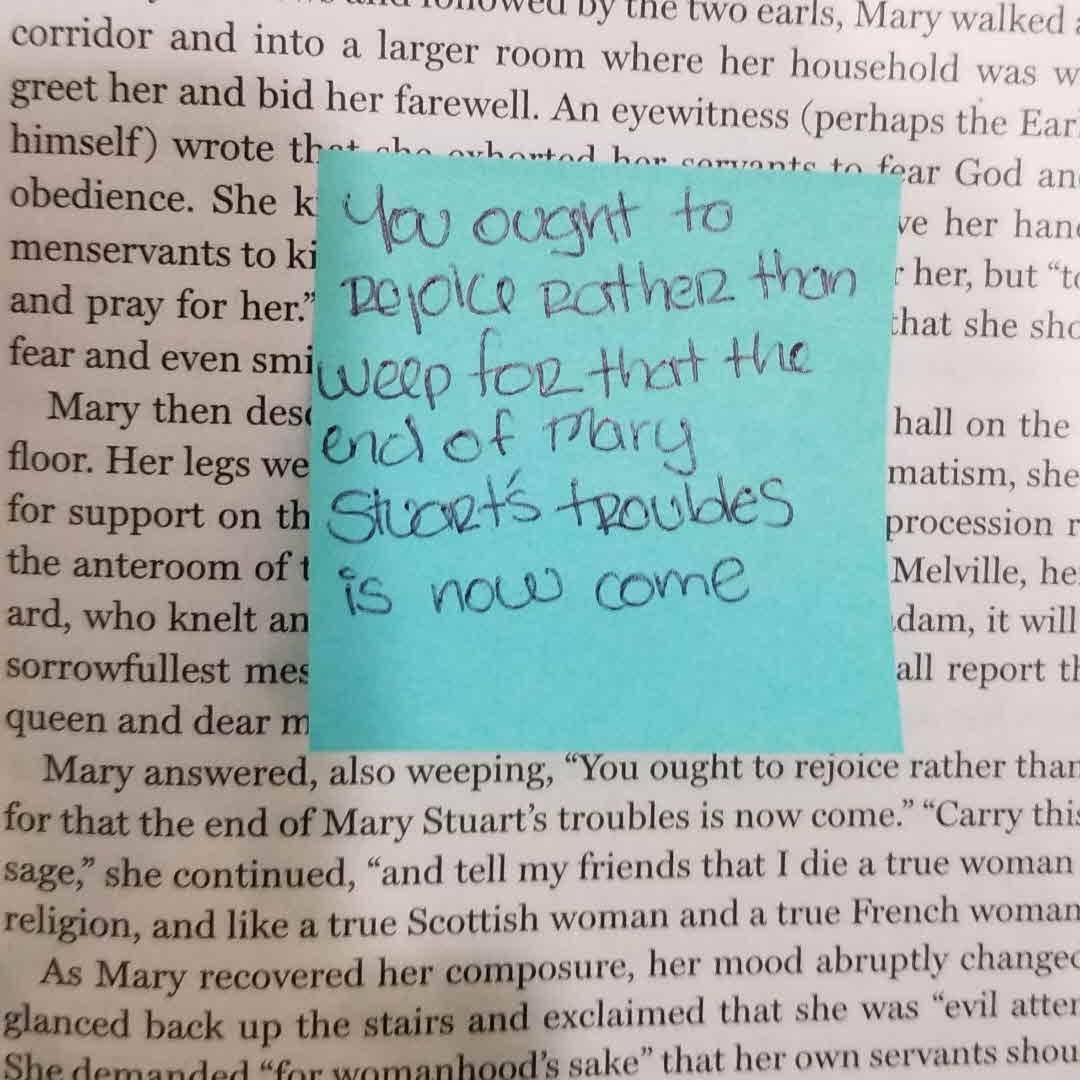 and followed by the two earls, Mary walked
corridor and into a larger room where her household was
greet her and bid her farewell. An eyewitness (perhaps the Earl
himself) wrote that she exhorted her servants to fear God and
obedience. She
her hand
menservants to
her, but “to
and pray for her.”
that she
fear and even
Mary then
hall on the
floor. Her legs
she
for support on
procession
the anteroom of
Melville,
who knelt
it will
sorrowfullest
report
queen and dear
You ought to
rejoice rather than
weep for that the
end of Mary
Stuart's troubles
is now come
Mary answered, also weeping, “You ought to rejoice rather than
for that the end of Mary Stuart’s troubles is now come.” “Carry this
sage,” she continued, “and tell my friends that I die a true woman
religion, and like a true Scottish woman and a true French woman
As Mary recovered her composure, her mood abruptly changed
glanced back up the stairs and exclaimed that she was “evil
She demanded “for womanhood’s sake” that her own servants